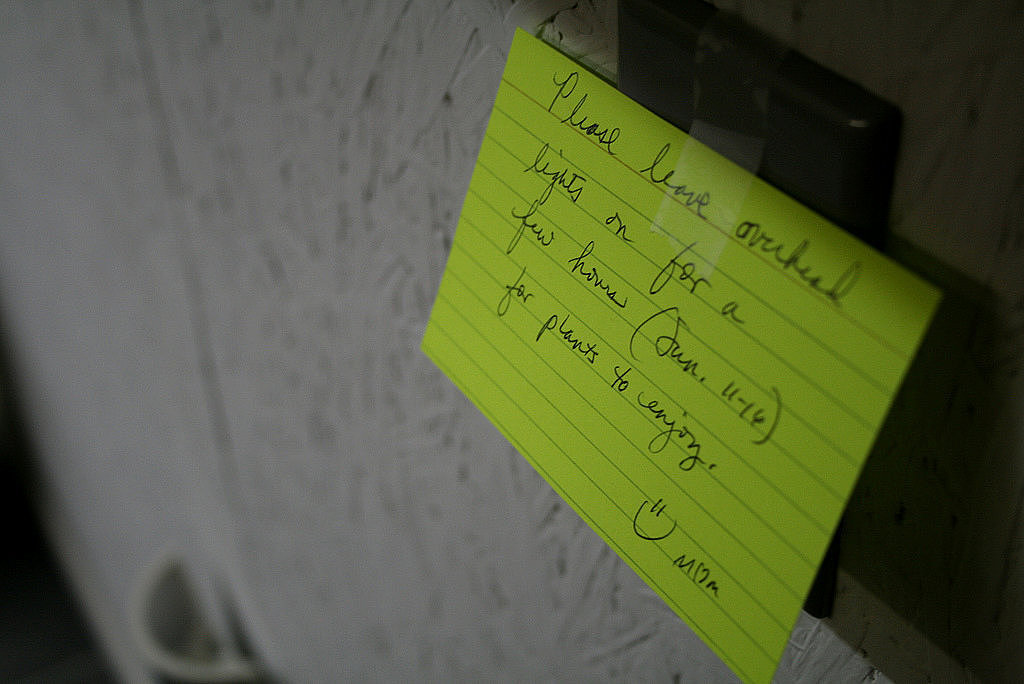 Please leave overhead
lights on for a
few hours (Sun. 11-16)
for plants to enjoy.
MOM